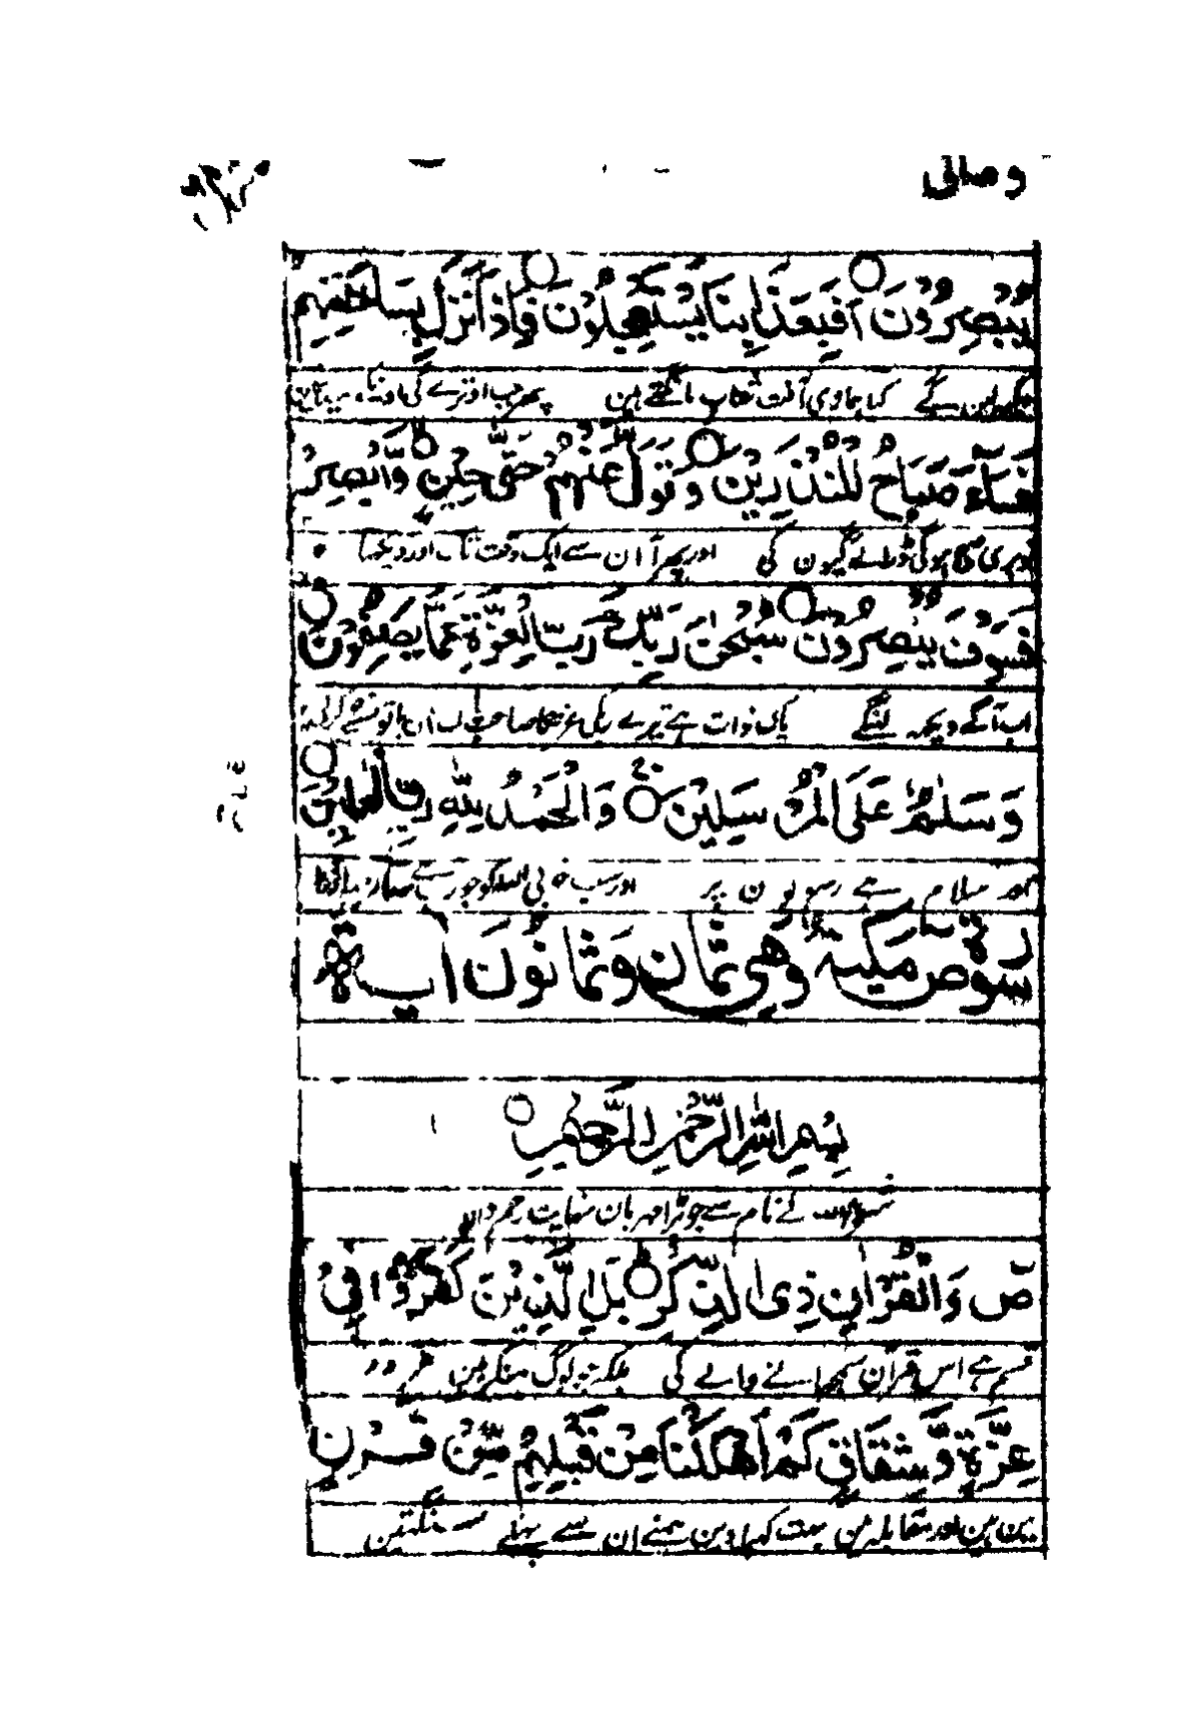 وصافی
يُبْصِرُوْنَ اَفَبِعَذَابِنَا يَسْتَعْجِلُوْنَ فَاِذَا نَزَلَ بِسَاحَتِهِمْ
لین گے کیا ہماری آفت شتاب مانگتے ہین پھر جب اوترے گی میدان
فَسَآءَ صَبَاحُ الْمُنْذَرِيْنَ وَتَوَلَّ عَنْهُمْ حَتّٰى حِيْنٍ وَّاَبْصِرْ
بری صبح ہوگی ڈرائے گیون کی اور پھر آ ان سے ایک وقت تک اور دیکھتا
فَسَوْفَ يُبْصِرُوْنَ سُبْحٰنَ رَبِّكَ رَبِّ الْعِزَّةِ عَمَّا يَصِفُوْنَ
اب آگے دیکھ لینگے پاک ذات ہے تیرے رب کی عزت کا صاحب ان باتون سے
وَسَلٰمٌ عَلَى الْمُرْسَلِيْنَ وَالْحَمْدُ لِلّٰهِ رَبِّ الْعٰلَمِيْنَ
اور سلام ہے رسولون پر اور سب خوبی اللہ کو جو رب ہے سارے جہان کا
سورة ص مكية وهي ثمان وثمانون آية
بِسْمِ اللّٰهِ الرَّحْمٰنِ الرَّحِيْمِ
شروع اللہ کے نام سے جو بڑا مہربان نہایت رحم والا
صٓ وَالْقُرْاٰنِ ذِى الذِّكْرِ بَلِ الَّذِيْنَ كَفَرُوْا فِيْ
قسم ہے اس قرآن سمجھانے والے کی بلکہ جو لوگ منکر ہین
عِزَّةٍ وَّشِقَاقٍ كَمْ اَهْلَكْنَا مِنْ قَبْلِهِمْ مِّنْ قَرْنٍ
مین ہین اور مقابلہ مین بہت کھپا دین ہمنے ان سے پہلے سنگتین